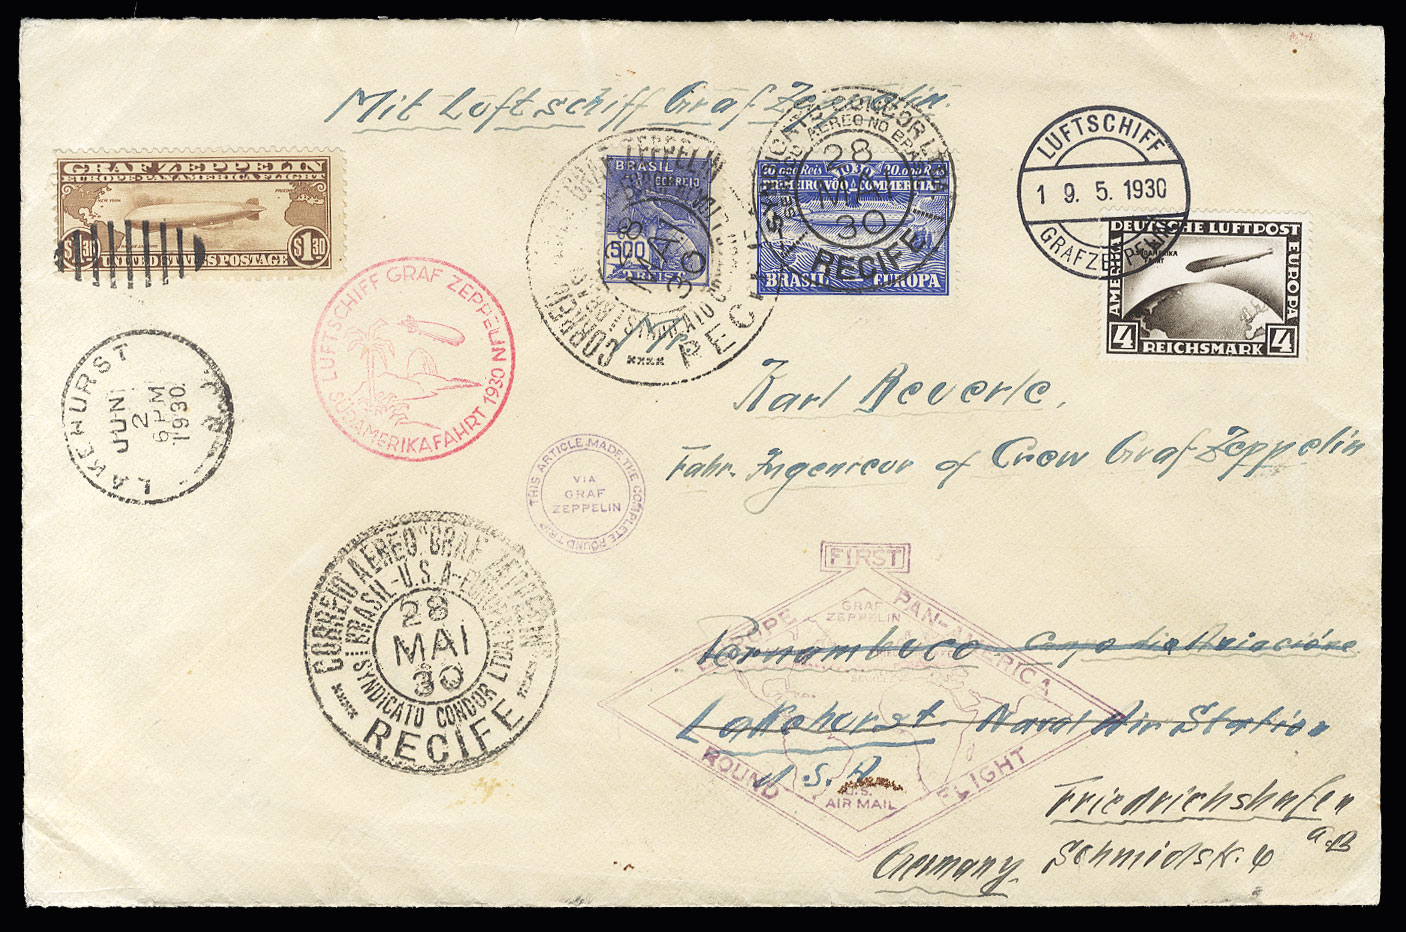 Mit Luftschiff Graf Zeppelin.
GRAF ZEPPELIN
EUROPE-PAN AMERICA FLIGHT
$1.30 $1.30
UNITED STATES POSTAGE
BRASIL
CORREIO
500
REIS
20.000 Reis 1930 20.000 Reis
PRIMEIRO VÔO COMMERCIAL
BRASIL EUROPA
SYNDICATO CONDOR LTDA
SERVIÇO AEREO NO BRASIL
28
MAI
30
RECIFE
CORREIO AEREO "GRAF ZEPPELIN"
SYNDICATO CONDOR LTDA
28
MAI
30
RECIFE
LUFTSCHIFF
19.5.1930
GRAF ZEPPELIN
DEUTSCHE LUFTPOST
AMERIKA
EUROPA
SÜDAMERIKA
FAHRT
4 REICHSMARK 4
LUFTSCHIFF GRAF ZEPPELIN
SÜDAMERIKAFAHRT 1930
LAKEHURST N.J.
JUN
2
6 PM
1930
THIS ARTICLE MADE THE COMPLETE ROUND TRIP
VIA
GRAF
ZEPPELIN
Karl Beuerle,
Fahr. Ingenieur of Crew Graf Zeppelin
CORREIO AEREO "GRAF ZEPPELIN"
BRASIL-U.S.A-EUROPA
28
MAI
30
SYNDICATO CONDOR LTDA
RECIFE
FIRST
EUROPE PAN-AMERICA
GRAF
ZEPPELIN
ROUND FLIGHT
U.S.
AIR MAIL
Pernambuco
Lakehurst Naval Air Station
U.S.A.
Friedrichshafen
a.B
Germany